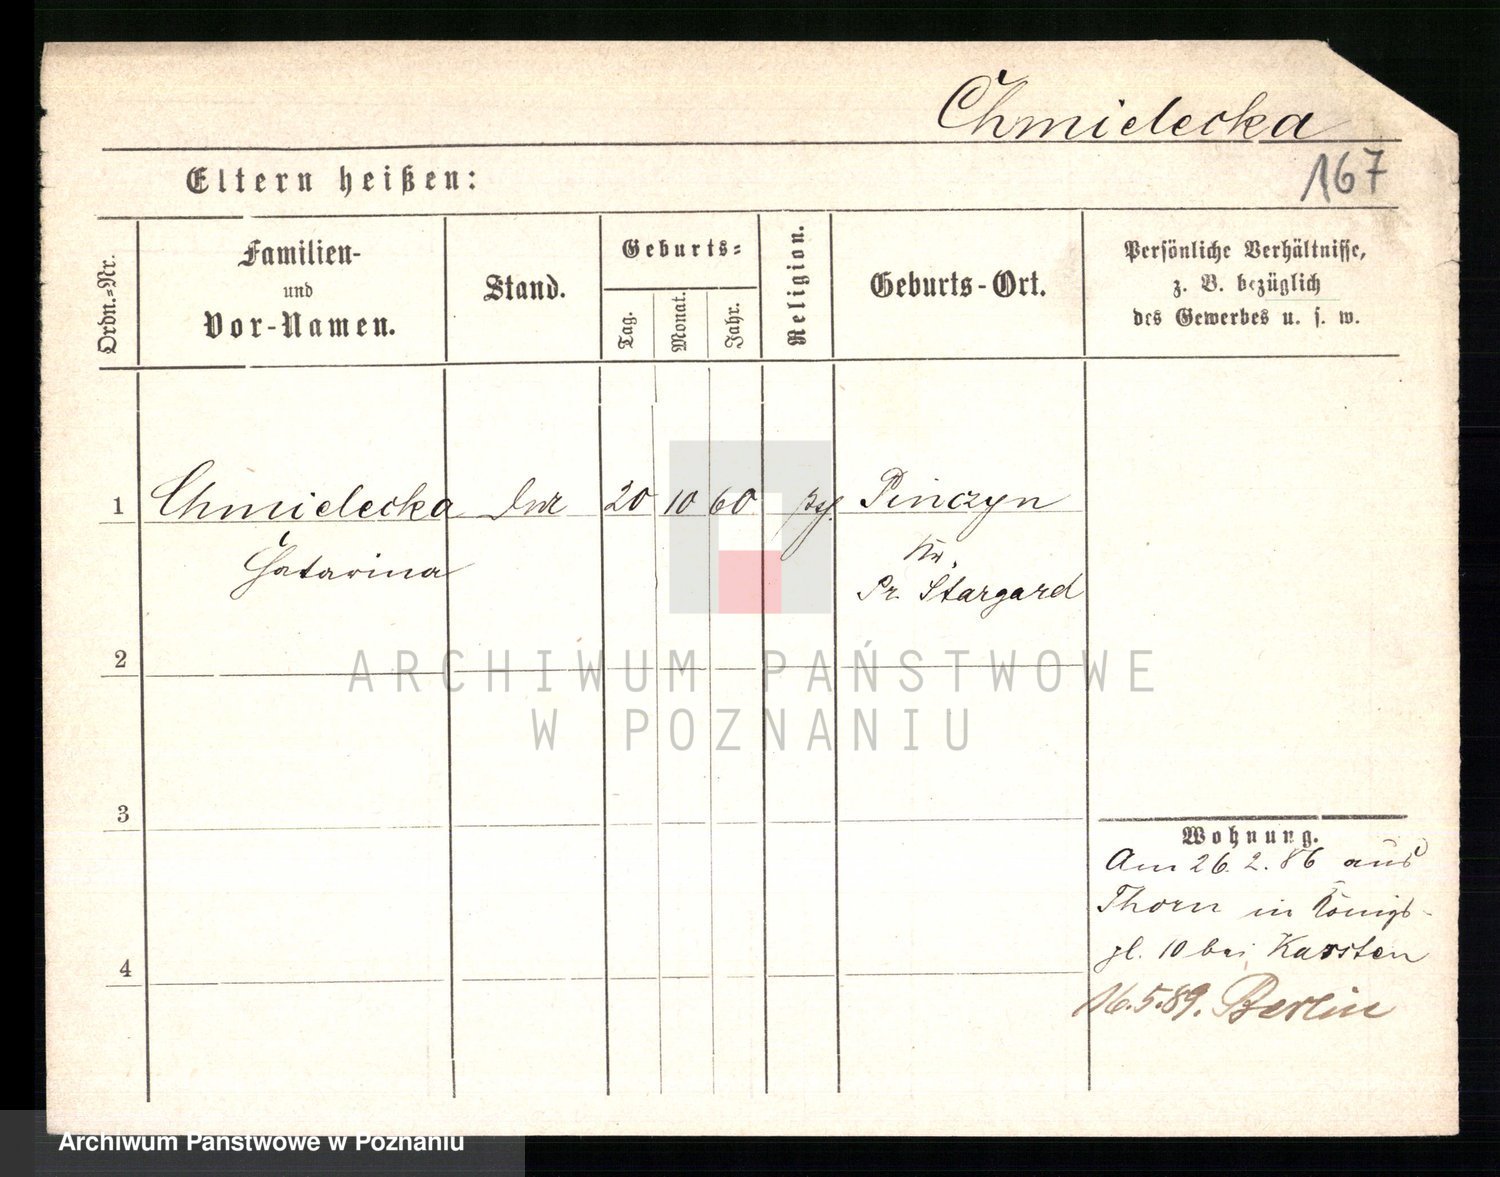 Chmielecka
167
Eltern heißen:
Ordn.=Nr.
Familien-
und
Vor-Namen.
Stand.
Geburts=
Tag.
Monat.
Jahr.
Religion.
Geburts-Ort.
Persönliche Verhältnisse,
z. B. bezüglich
des Gewerbes u. s. w.
1 Chmielecka 20 10 60 Pinczyn
Catarina Kr.
Pr. Stargard
2
3
4
Wohnung.
Am 26. 2. 86 aus
Thorn in Königs-
pl. 10 bei Karsten
16.5.89. Berlin
ARCHIWUM PAŃSTWOWE
W POZNANIU
Archiwum Państwowe w Poznaniu